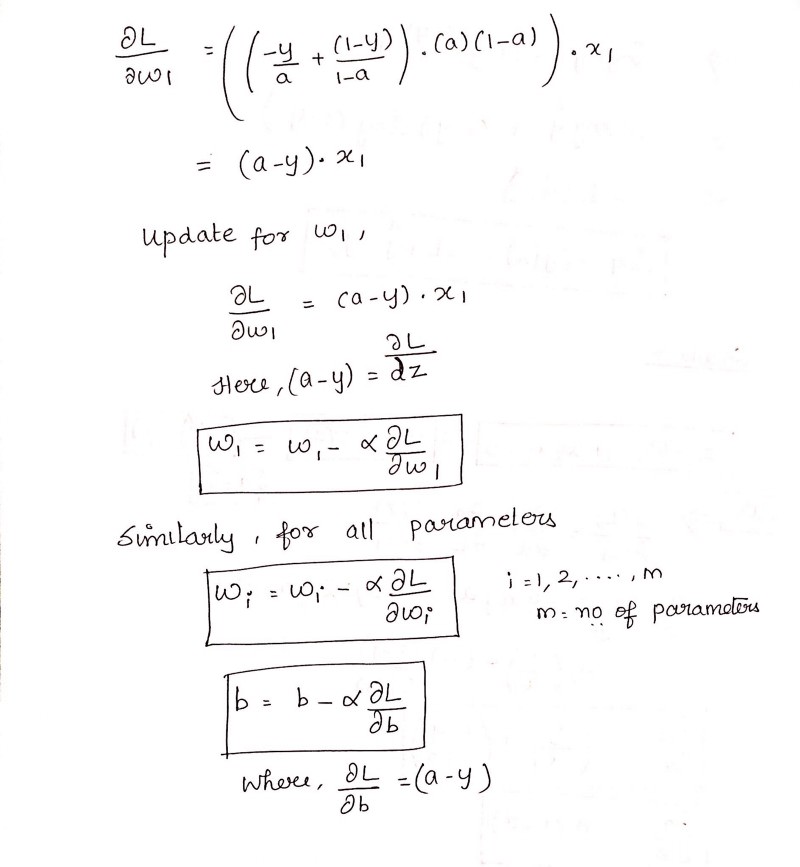 ∂L/∂w₁ = ((-y/a + (1-y)/1-a) · (a)(1-a)) · x₁
= (a-y) · x₁
Update for w₁,
∂L/∂w₁ = (a-y) · x₁
Here, (a-y) = ∂L/dz
w₁ = w₁ - α ∂L/∂w₁
Similarly, for all parameters
wᵢ = wᵢ - α ∂L/∂wᵢ i = 1, 2, ...., m
m = no of parameters
b = b - α ∂L/∂b
Where, ∂L/∂b = (a-y)